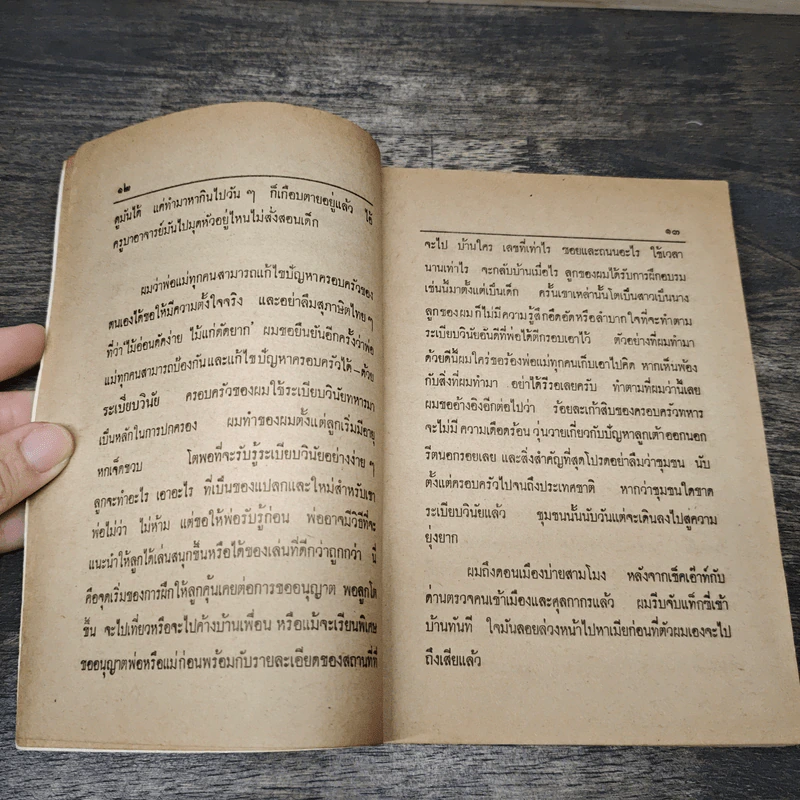 ๑๒
ดูมันได้ แค่ทำมาหากินไปวัน ๆ ก็เกือบตายอยู่แล้ว ไอ้
ครูบาอาจารย์มันไปมุดหัวอยู่ไหนไม่สั่งสอนเด็ก
ผมว่าพ่อแม่ทุกคนสามารถแก้ไขปัญหาครอบครัวของ
ตนเองได้ขอให้มีความตั้งใจจริง และอย่าลืมสุภาษิตไทย ๆ
ที่ว่า 'ไม้อ่อนดัดง่าย ไม้แก่ดัดยาก' ผมขอยืนยันอีกครั้งว่าพ่อ
แม่ทุกคนสามารถป้องกันและแก้ไข ปัญหาครอบครัวได้-ด้วย
ระเบียบวินัย ครอบครัวของผมใช้ระเบียบวินัยทหารมา
เป็นหลักในการปกครอง ผมทำของผมตั้งแต่ลูกเริ่มมีอายุ
หกเจ็ดขวบ โตพอที่จะรับรู้ระเบียบวินัยอย่างง่าย ๆ
ลูกจะทำอะไร เอาอะไร ที่เป็นของแปลกและใหม่สำหรับเขา
พ่อไม่ว่า ไม่ห้าม แต่ขอให้พ่อรับรู้ก่อน พ่ออาจมีวิธีที่จะ
แนะนำให้ลูกได้เล่นสนุกขึ้นหรือได้ของเล่นที่ดีกว่าถูกกว่า นี่
คือจุดเริ่มของการฝึกให้ลูกคุ้นเคยต่อการขออนุญาต พอลูกโต
ขึ้น จะไปเที่ยวหรือจะไปค้างบ้านเพื่อน หรือแม้จะเรียนพิเศษ
ขออนุญาตพ่อหรือแม่ก่อนพร้อมกับรายละเอียดของสถานที่ที่
๑๓
จะไป บ้านใคร เลขที่เท่าไร ซอยและถนนอะไร ใช้เวลา
นานเท่าไร จะกลับบ้านเมื่อไร ลูกของผมได้รับการฝึกอบรม
เช่นนี้มาตั้งแต่เป็นเด็ก ครั้นเขาเหล่านั้นโตเป็นสาวเป็นนาง
ลูกของผม ก็ไม่มีความรู้สึกอึดอัดหรือลำบากใจที่จะทำตาม
ระเบียบวินัยอันดีที่พ่อได้ตีกรอบเอาไว้ ตัวอย่างที่ผมทำมา
ด้วยดีนี้ผมใคร่ขอร้องพ่อแม่ทุกคนเก็บเอาไปคิด หากเห็นพ้อง
กับสิ่งที่ผมทำมา อย่าได้รีรอเลยครับ ทำตามที่ผมว่านี้เลย
ผมขออ้างอิงอีกต่อไปว่า ร้อยละเก้าสิบของครอบครัวทหาร
จะไม่มี ความเดือดร้อน วุ่นวายเกี่ยวกับปัญหาลูกเต้าออกนอก
รีตนอกรอยเลย และสิ่งสำคัญที่สุดโปรดอย่าลืมว่าชุมชน นับ
ตั้งแต่ครอบครัวไปจนถึงประเทศชาติ หากว่าชุมชนใดขาด
ระเบียบวินัยแล้ว ชุมชนนั้นนับวันแต่จะเดินลงไปสู่ความ
ยุ่งยาก
ผมถึงดอนเมืองบ่ายสามโมง หลังจากเช็คเอ๊าท์กับ
ด่านตรวจคนเข้าเมืองและศุลกากรแล้ว ผมรีบจับแท็กซี่เข้า
บ้านทันที ใจมันลอยล่วงหน้าไปหาเมียก่อนที่ตัวผมเองจะไป
ถึงเสียแล้ว